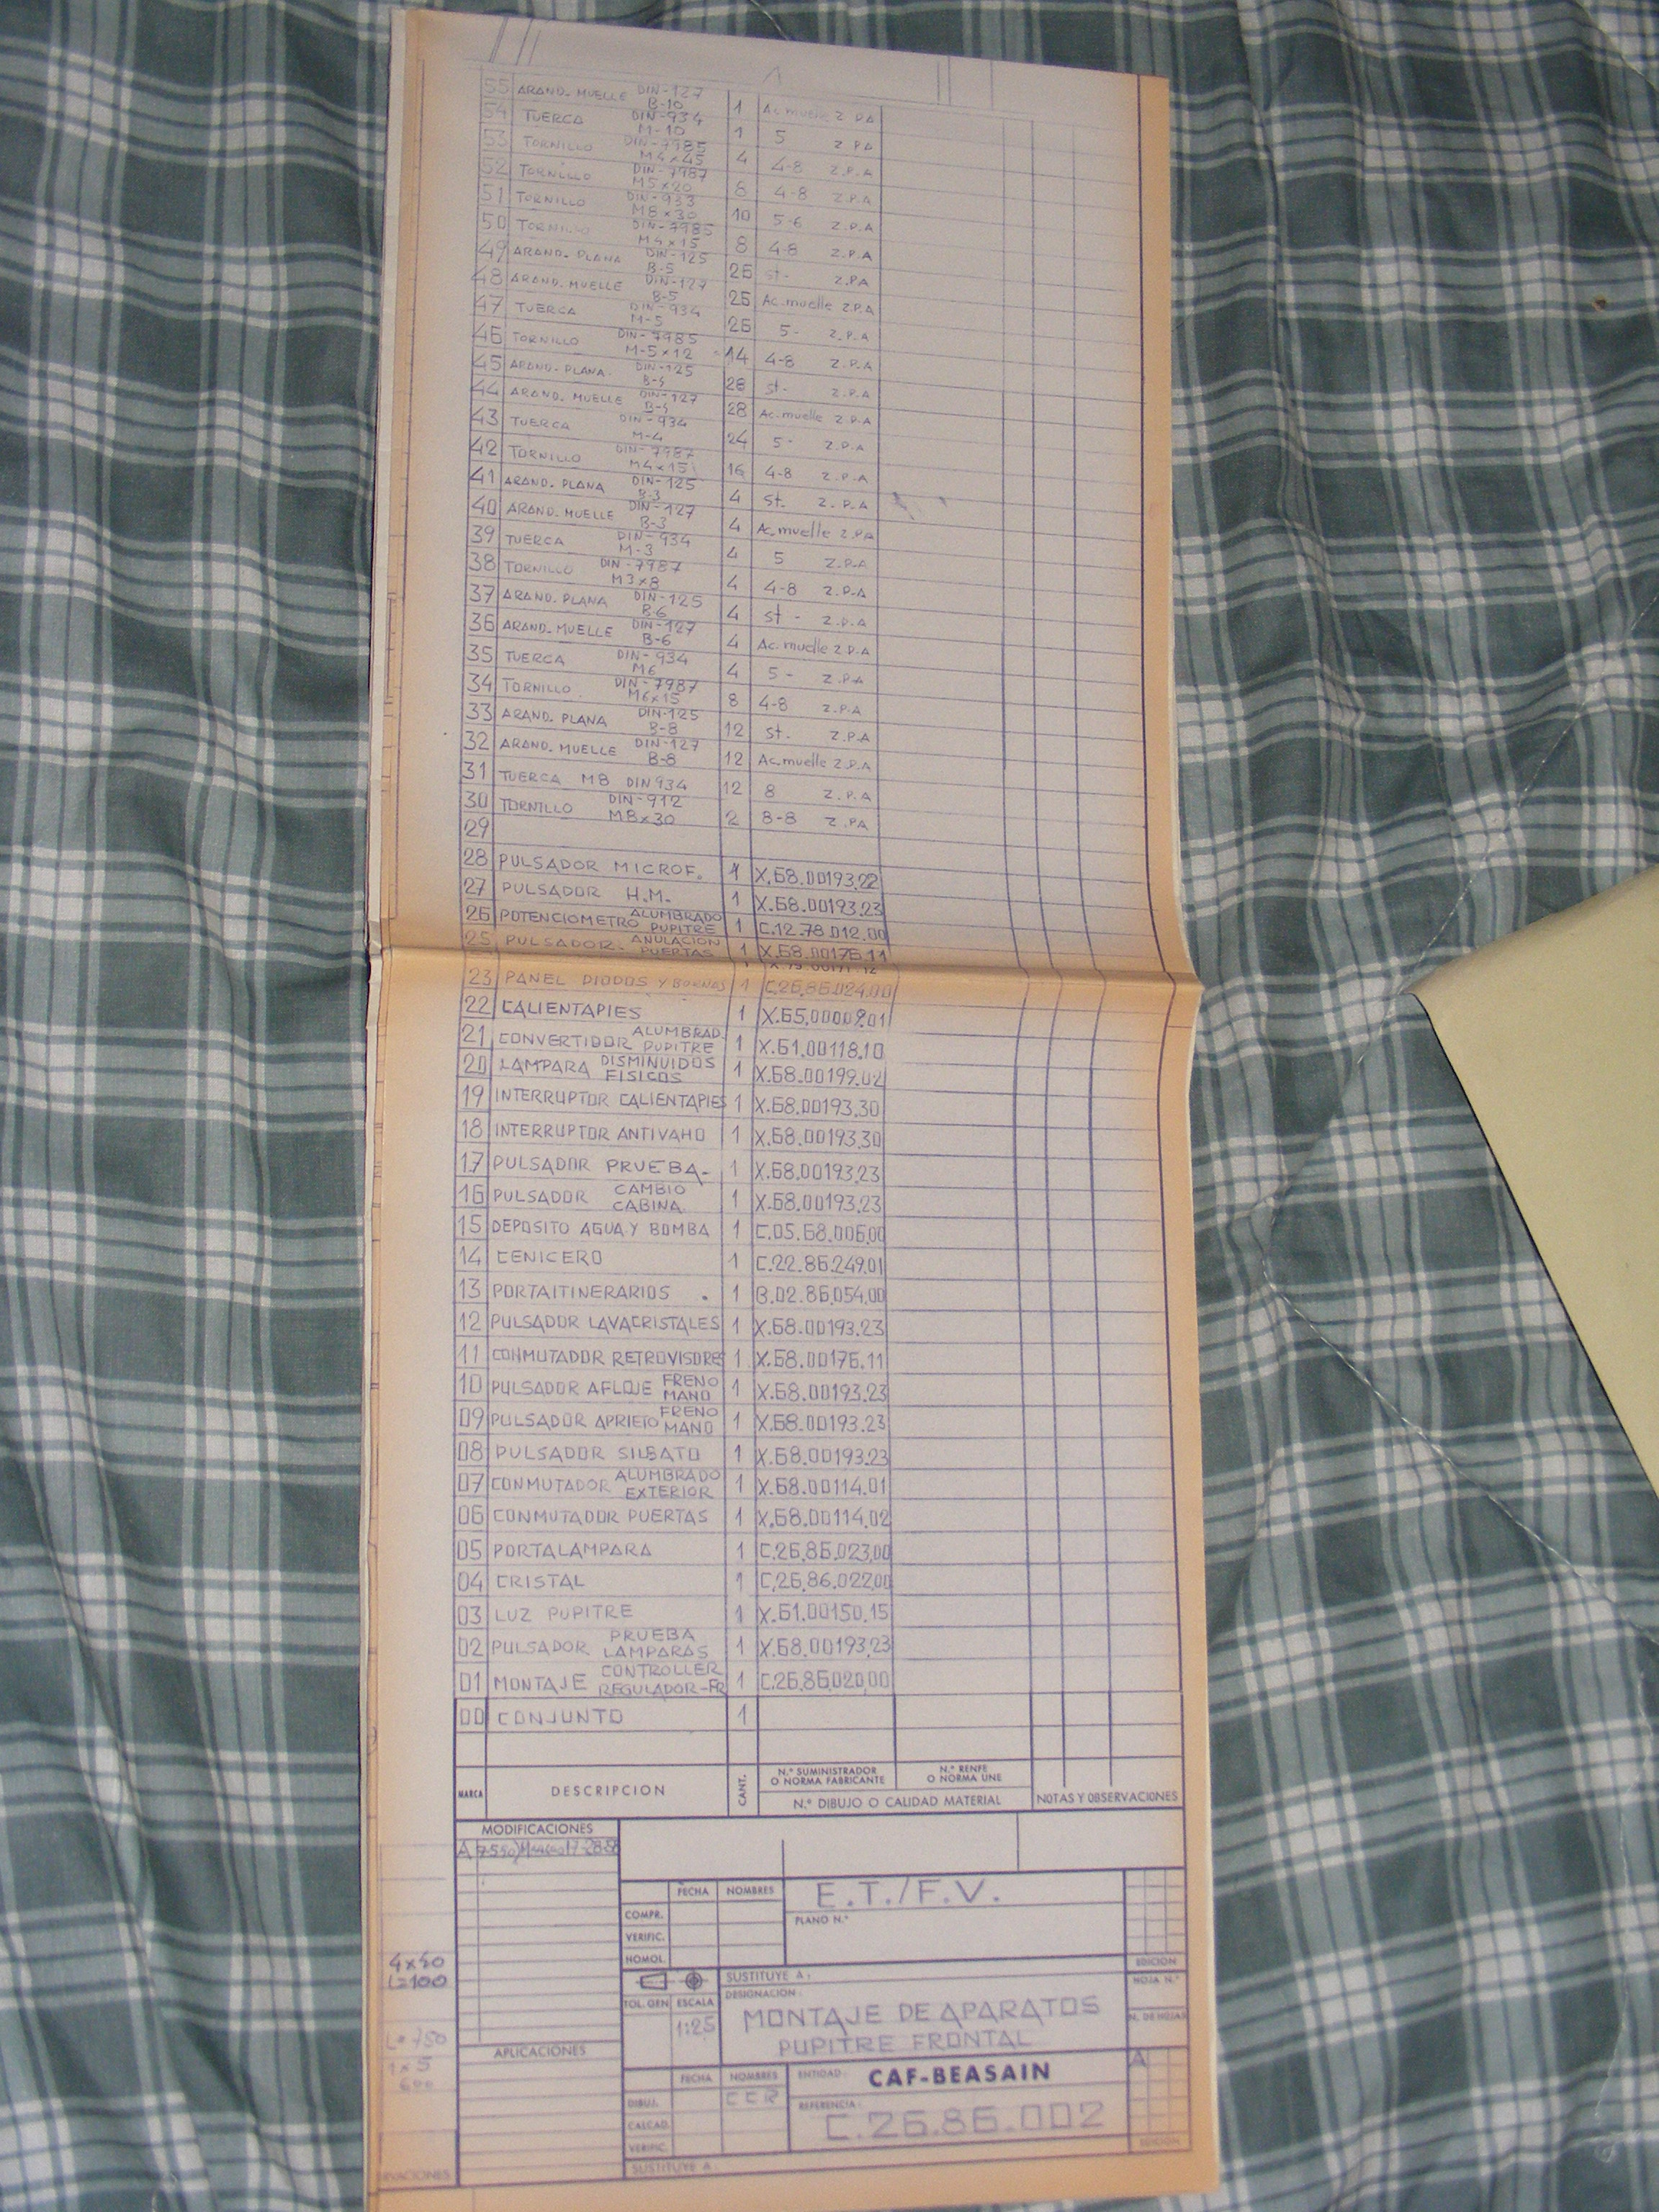 55 ARAND. MUELLE DIN-127 B-10 1 Ac muelle Z PA
54 TUERCA DIN-934 M-10 1 5 Z PA
53 TORNILLO DIN-7985 M4x45 4 4-8 Z.P.A
52 TORNILLO DIN-7987 M5x20 8 4-8 Z.P.A
51 TORNILLO DIN-933 M8x30 10 5-6 Z.P.A
50 TORNILLO DIN-7985 M4x15 8 4-8 Z.P.A
49 ARAND. PLANA DIN-125 B-5 26 st- Z.PA
48 ARAND. MUELLE DIN-127 B-5 26 Ac.muelle Z.P.A
47 TUERCA DIN-934 M-5 26 5- Z.P.A
46 TORNILLO DIN-7985 M-5x12 14 4-8 Z.P.A
45 ARAND-PLANA. DIN-125 B-4 28 st- Z.P.A
44 ARAND. MUELLE DIN-127 B-4 28 Ac.muelle Z.P.A
43 TUERCA DIN-934 M-4 24 5- Z.P.A
42 TORNILLO DIN-7987 M4x15 16 4-8 Z.P.A
41 ARAND. PLANA DIN-125 B-3 4 St. Z.P.A
40 ARAND. MUELLE DIN-127 B-3 4 Ac.muelle Z.PA
39 TUERCA DIN-934 M-3 4 5 Z.P.A
38 TORNILLO DIN-7987 M3x8 4 4-8 Z.P.A
37 ARAND. PLANA DIN-125 B-6 4 st- Z.P.A
36 ARAND. MUELLE DIN-127 B-6 4 Ac.muelle Z.P.A
35 TUERCA DIN-934 M6 4 5- Z.P.A
34 TORNILLO DIN-7987 M6x15 8 4-8 Z.P.A
33 ARAND. PLANA DIN-125 B-8 12 st. Z.P.A
32 ARAND. MUELLE DIN-127 B-8 12 Ac.muelle Z.P.A
31 TUERCA M8 DIN934 12 8 Z.P.A
30 TORNILLO DIN-912 M8x30 2 8-8 Z.PA
29
28 PULSADOR MICROF. 1 X.68.00193.22
27 PULSADOR H.M. 1 X.68.00193.23
26 POTENCIOMETRO ALUMBRADO PUPITRE 1 C.12.78.012.00
25 PULSADOR- ANULACION PUERTAS 1 X.68.00176.11
23 PANEL DIODOS Y BORNAS 1 C.26.86.024.00
22 CALIENTAPIES 1 X.65.00009.01
21 CONVERTIDOR ALUMBRAD. PUPITRE 1 X.61.00118.10
20 LAMPARA DISMINUIDOS FISICOS 1 X.68.00199.02
19 INTERRUPTOR CALIENTAPIES 1 X.68.00193.30
18 INTERRUPTOR ANTIVAHO 1 X.68.00193.30
17 PULSADOR PRUEBA- 1 X.68.00193.23
16 PULSADOR CAMBIO CABINA 1 X.68.00193.23
15 DEPOSITO AGUA Y BOMBA 1 C.05.68.006.00
14 CENICERO 1 C.22.86.249.01
13 PORTAITINERARIOS . 1 B.02.86.054.00
12 PULSADOR LAVACRISTALES 1 X.68.00193.23
11 CONMUTADOR RETROVISORES 1 X.68.00176.11
10 PULSADOR AFLOJE FRENO MANO 1 X.68.00193.23
09 PULSADOR APRIETO FRENO MANO 1 X.68.00193.23
08 PULSADOR SILBATO 1 X.68.00193.23
07 CONMUTADOR ALUMBRADO EXTERIOR 1 X.68.00114.01
06 CONMUTADOR PUERTAS 1 X.68.00114.02
05 PORTALAMPARA 1 C.26.86.023.00
04 CRISTAL 1 C.26.86.022.00
03 LUZ PUPITRE 1 X.61.00150.15
02 PULSADOR PRUEBA LAMPARAS 1 X.68.00193.23
01 MONTAJE CONTROLLER REGULADOR-FR 1 C.26.86.020.00
00 CONJUNTO 1
MARCA DESCRIPCION CANT. N.º SUMINISTRADOR O NORMA FABRICANTE N.º RENFE O NORMA UNE
N.º DIBUJO O CALIDAD MATERIAL NOTAS Y OBSERVACIONES
MODIFICACIONES
A
FECHA NOMBRES E.T./F.V.
COMPR. PLANO N.º
VERIFIC.
HOMOL. EDICION
4x40
L=100
SUSTITUYE A: HOJA N.º
TOL. GEN ESCALA DESIGNACION:
1:25 MONTAJE DE APARATOS N. DE HOJAS
PUPITRE FRONTAL
L=750
1x5
600
APLICACIONES
FECHA NOMBRES ENTIDAD: CAF-BEASAIN A
DIBUJ. CCR REFERENCIA:
CALCAD. C.26.86.002
VERIFIC. EDICION
SUSTITUYE A:
RVACIONES